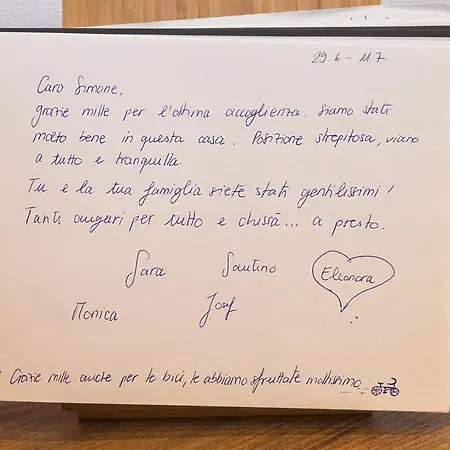 29.6 - 11.7
Caro Simone,
grazie mille per l'ottima accoglienza. Siamo stati
molto bene in questa casa. Posizione strepitosa, vicino
a tutto e tranquilla
Tu e la tua famiglia siete stati gentilissimi!
Tanti auguri per tutto e chissà... a presto.
Sara Santino Eleonora
Monica Josef
Grazie mille anche per le bici, le abbiamo sfruttate moltissimo